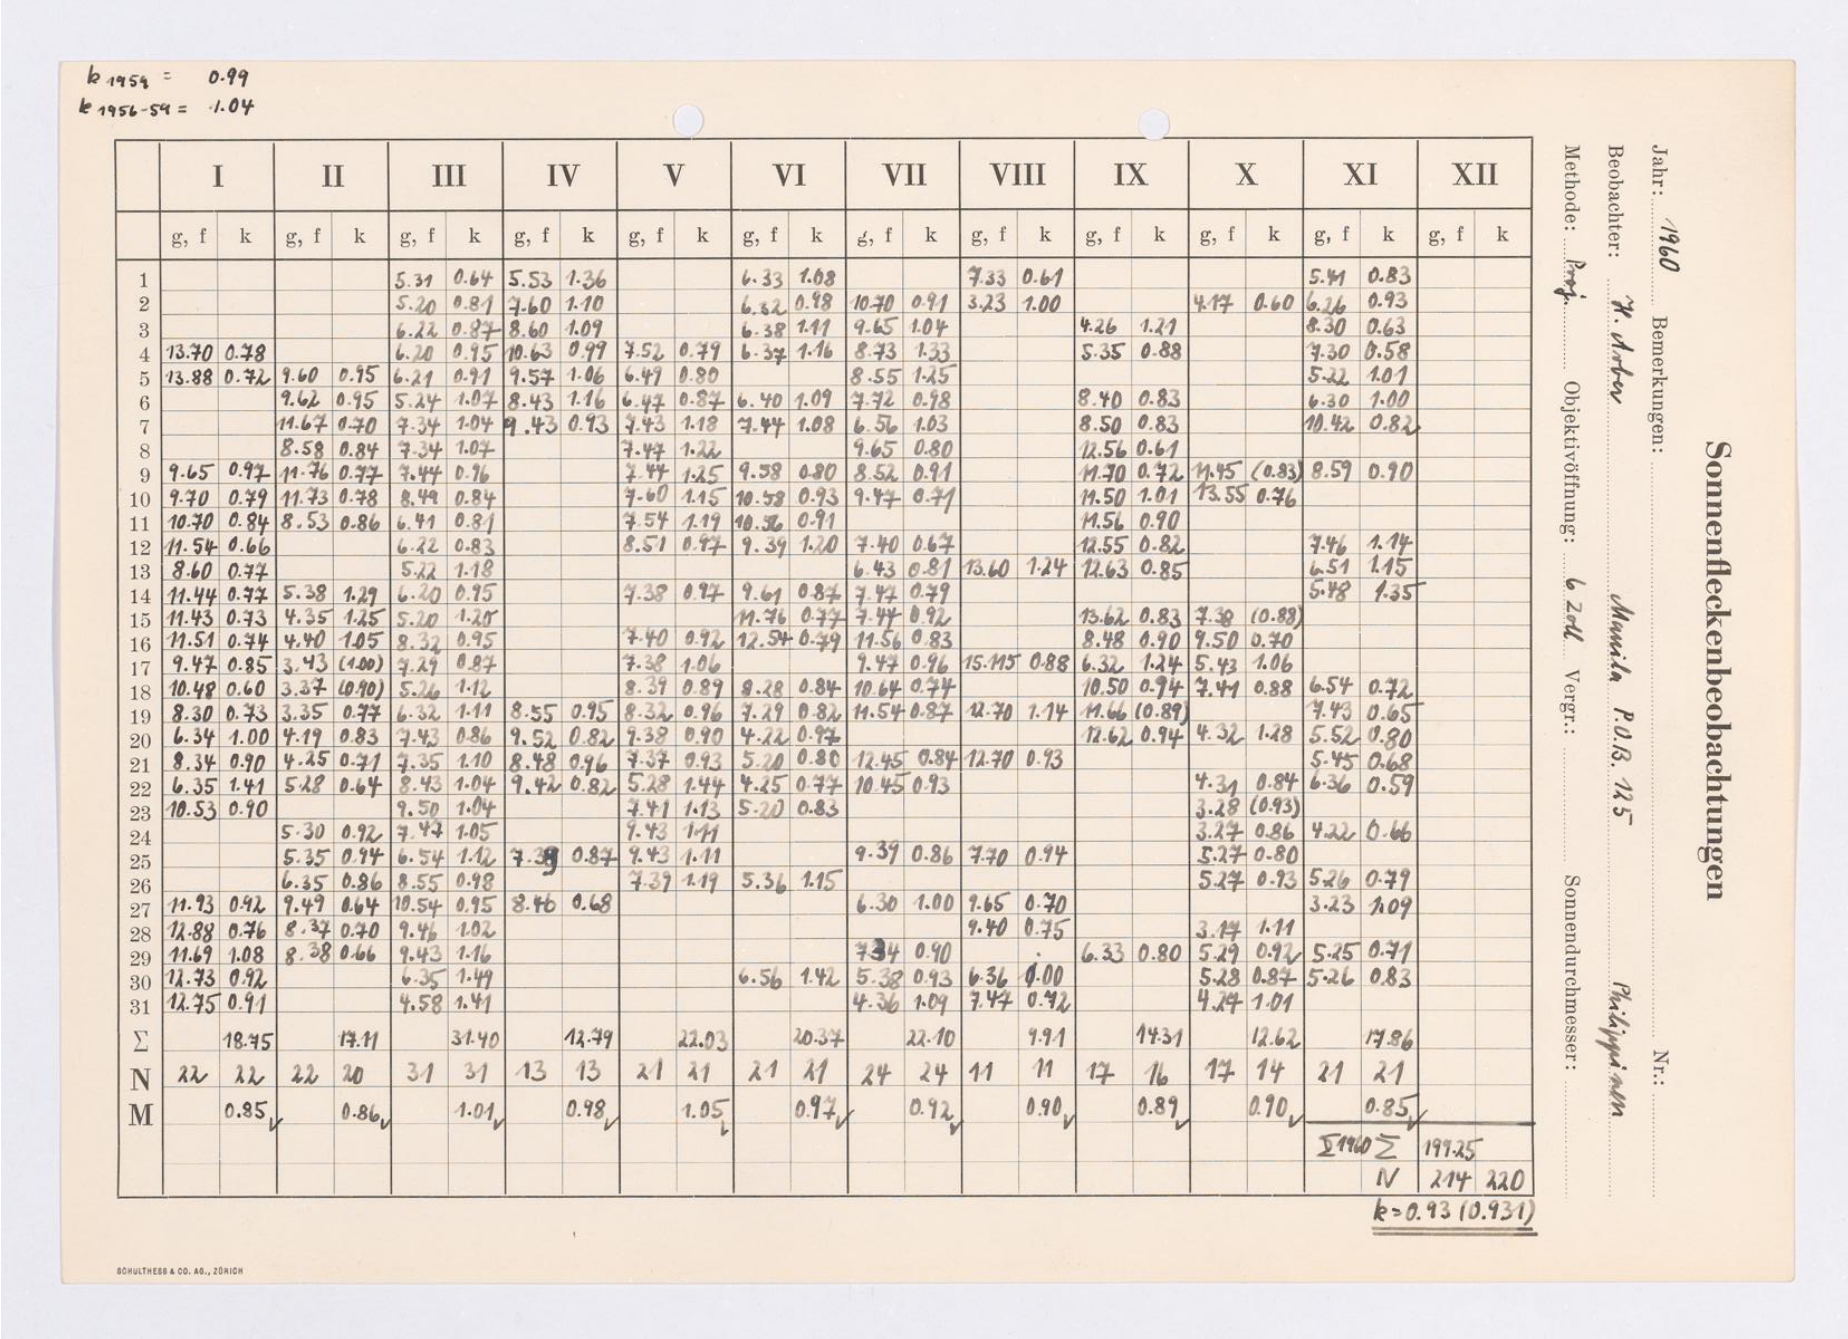 k 1959 = 0.99
k 1956-59 = 1.04
I II III IV V VI VII VIII IX X XI XII
g, f k g, f k g, f k g, f k g, f k g, f k g, f k g, f k g, f k g, f k g, f k g, f k
1 5.31 0.64 5.53 1.36 6.33 1.08 7.33 0.61 5.41 0.83
2 5.20 0.81 7.60 1.10 6.32 0.98 10.70 0.91 3.23 1.00 4.17 0.60 6.26 0.93
3 6.22 0.87 8.60 1.09 6.38 1.11 9.65 1.04 4.26 1.21 8.30 0.63
4 13.70 0.78 6.20 0.95 10.63 0.99 7.52 0.79 6.37 1.16 8.73 1.33 5.35 0.88 7.30 0.58
5 13.88 0.72 9.60 0.95 6.21 0.91 9.57 1.06 6.49 0.80 8.55 1.25 5.22 1.01
6 9.62 0.95 5.24 1.07 8.43 1.16 6.47 0.87 6.40 1.09 7.72 0.98 8.40 0.83 6.30 1.00
7 11.67 0.70 7.34 1.04 9.43 0.93 7.43 1.18 7.44 1.08 6.56 1.03 8.50 0.83 10.42 0.82
8 8.58 0.84 7.34 1.07 7.47 1.22 9.65 0.80 12.56 0.61
9 9.65 0.97 11.76 0.77 7.44 0.96 7.44 1.25 9.58 0.80 8.52 0.91 11.70 0.72 11.45 (0.83) 8.59 0.90
10 9.70 0.79 11.73 0.78 8.49 0.84 7.60 1.15 10.58 0.93 9.47 0.71 11.50 1.01 13.55 0.76
11 10.70 0.84 8.53 0.86 6.41 0.81 7.54 1.19 10.56 0.91 11.56 0.90
12 11.54 0.66 6.22 0.83 8.51 0.97 9.39 1.20 7.40 0.67 12.55 0.82 7.46 1.14
13 8.60 0.77 5.22 1.18 6.43 0.81 13.60 1.24 12.63 0.85 6.51 1.15
14 11.44 0.77 5.38 1.29 6.20 0.95 7.38 0.97 9.61 0.87 7.47 0.79 5.48 1.35
15 11.43 0.73 4.35 1.25 5.20 1.20 11.76 0.77 7.44 0.92 13.62 0.83 7.38 (0.88)
16 11.51 0.74 4.40 1.05 8.32 0.95 7.40 0.92 12.54 0.79 11.56 0.83 8.48 0.90 9.50 0.70
17 9.47 0.85 3.43 (1.00) 7.29 0.87 7.38 1.06 9.47 0.96 15.115 0.88 6.32 1.24 5.43 1.06
18 10.48 0.60 3.37 (0.90) 5.26 1.12 8.39 0.89 8.28 0.84 10.64 0.74 10.50 0.94 7.41 0.88 6.54 0.72
19 8.30 0.73 3.35 0.77 6.32 1.11 8.55 0.95 8.32 0.96 7.29 0.82 11.54 0.87 12.70 1.14 11.66 (0.89) 7.43 0.65
20 6.34 1.00 4.19 0.83 7.43 0.86 9.52 0.82 9.38 0.90 4.22 0.97 12.62 0.94 4.32 1.28 5.52 0.80
21 8.34 0.90 4.25 0.71 7.35 1.10 8.48 0.96 7.37 0.93 5.20 0.80 12.45 0.84 12.70 0.93 5.45 0.68
22 6.35 1.41 5.28 0.64 8.43 1.04 9.42 0.82 5.28 1.44 4.25 0.77 10.45 0.93 4.31 0.84 6.36 0.59
23 10.53 0.90 9.50 1.04 7.41 1.13 5.20 0.83 3.28 (0.93)
24 5.30 0.92 7.47 1.05 9.43 1.11 3.27 0.86 4.22 0.66
25 5.35 0.94 6.54 1.12 7.39 0.87 9.43 1.11 9.39 0.86 7.70 0.94 5.27 0.80
26 6.35 0.86 8.55 0.98 7.39 1.19 5.36 1.15 5.27 0.93 5.26 0.79
27 11.93 0.92 9.49 0.64 10.54 0.95 8.46 0.68 6.30 1.00 9.65 0.70 3.23 1.09
28 12.88 0.76 8.37 0.70 9.46 1.02 9.40 0.75 3.17 1.11
29 11.69 1.08 8.38 0.66 9.43 1.16 7.34 0.90 6.33 0.80 5.29 0.92 5.25 0.71
30 12.73 0.92 6.35 1.49 6.56 1.42 5.38 0.93 6.36 1.00 5.28 0.87 5.26 0.83
31 12.75 0.91 4.58 1.41 4.36 1.09 7.47 0.72 4.27 1.01
Σ 18.75 17.11 31.40 12.79 22.03 20.37 22.10 9.91 14.31 12.62 17.86
N 22 22 22 20 31 31 13 13 21 21 21 21 24 24 11 11 17 16 17 14 21 21
M 0.85 0.86 1.01 0.98 1.05 0.97 0.92 0.90 0.89 0.90 0.85
1960 Σ 199.25
N 214 220
k=0.93 (0.931)
SCHULTHESS & CO. AG., ZÜRICH
Sonnenfleckenbeobachtungen
Jahr: 1960 Bemerkungen: Nr.:
Beobachter: H. Arber Manila P.O.B. 125 Philippinen
Methode: Proj. Objektivöffnung: 6 Zoll Vergr.: Sonnendurchmesser: